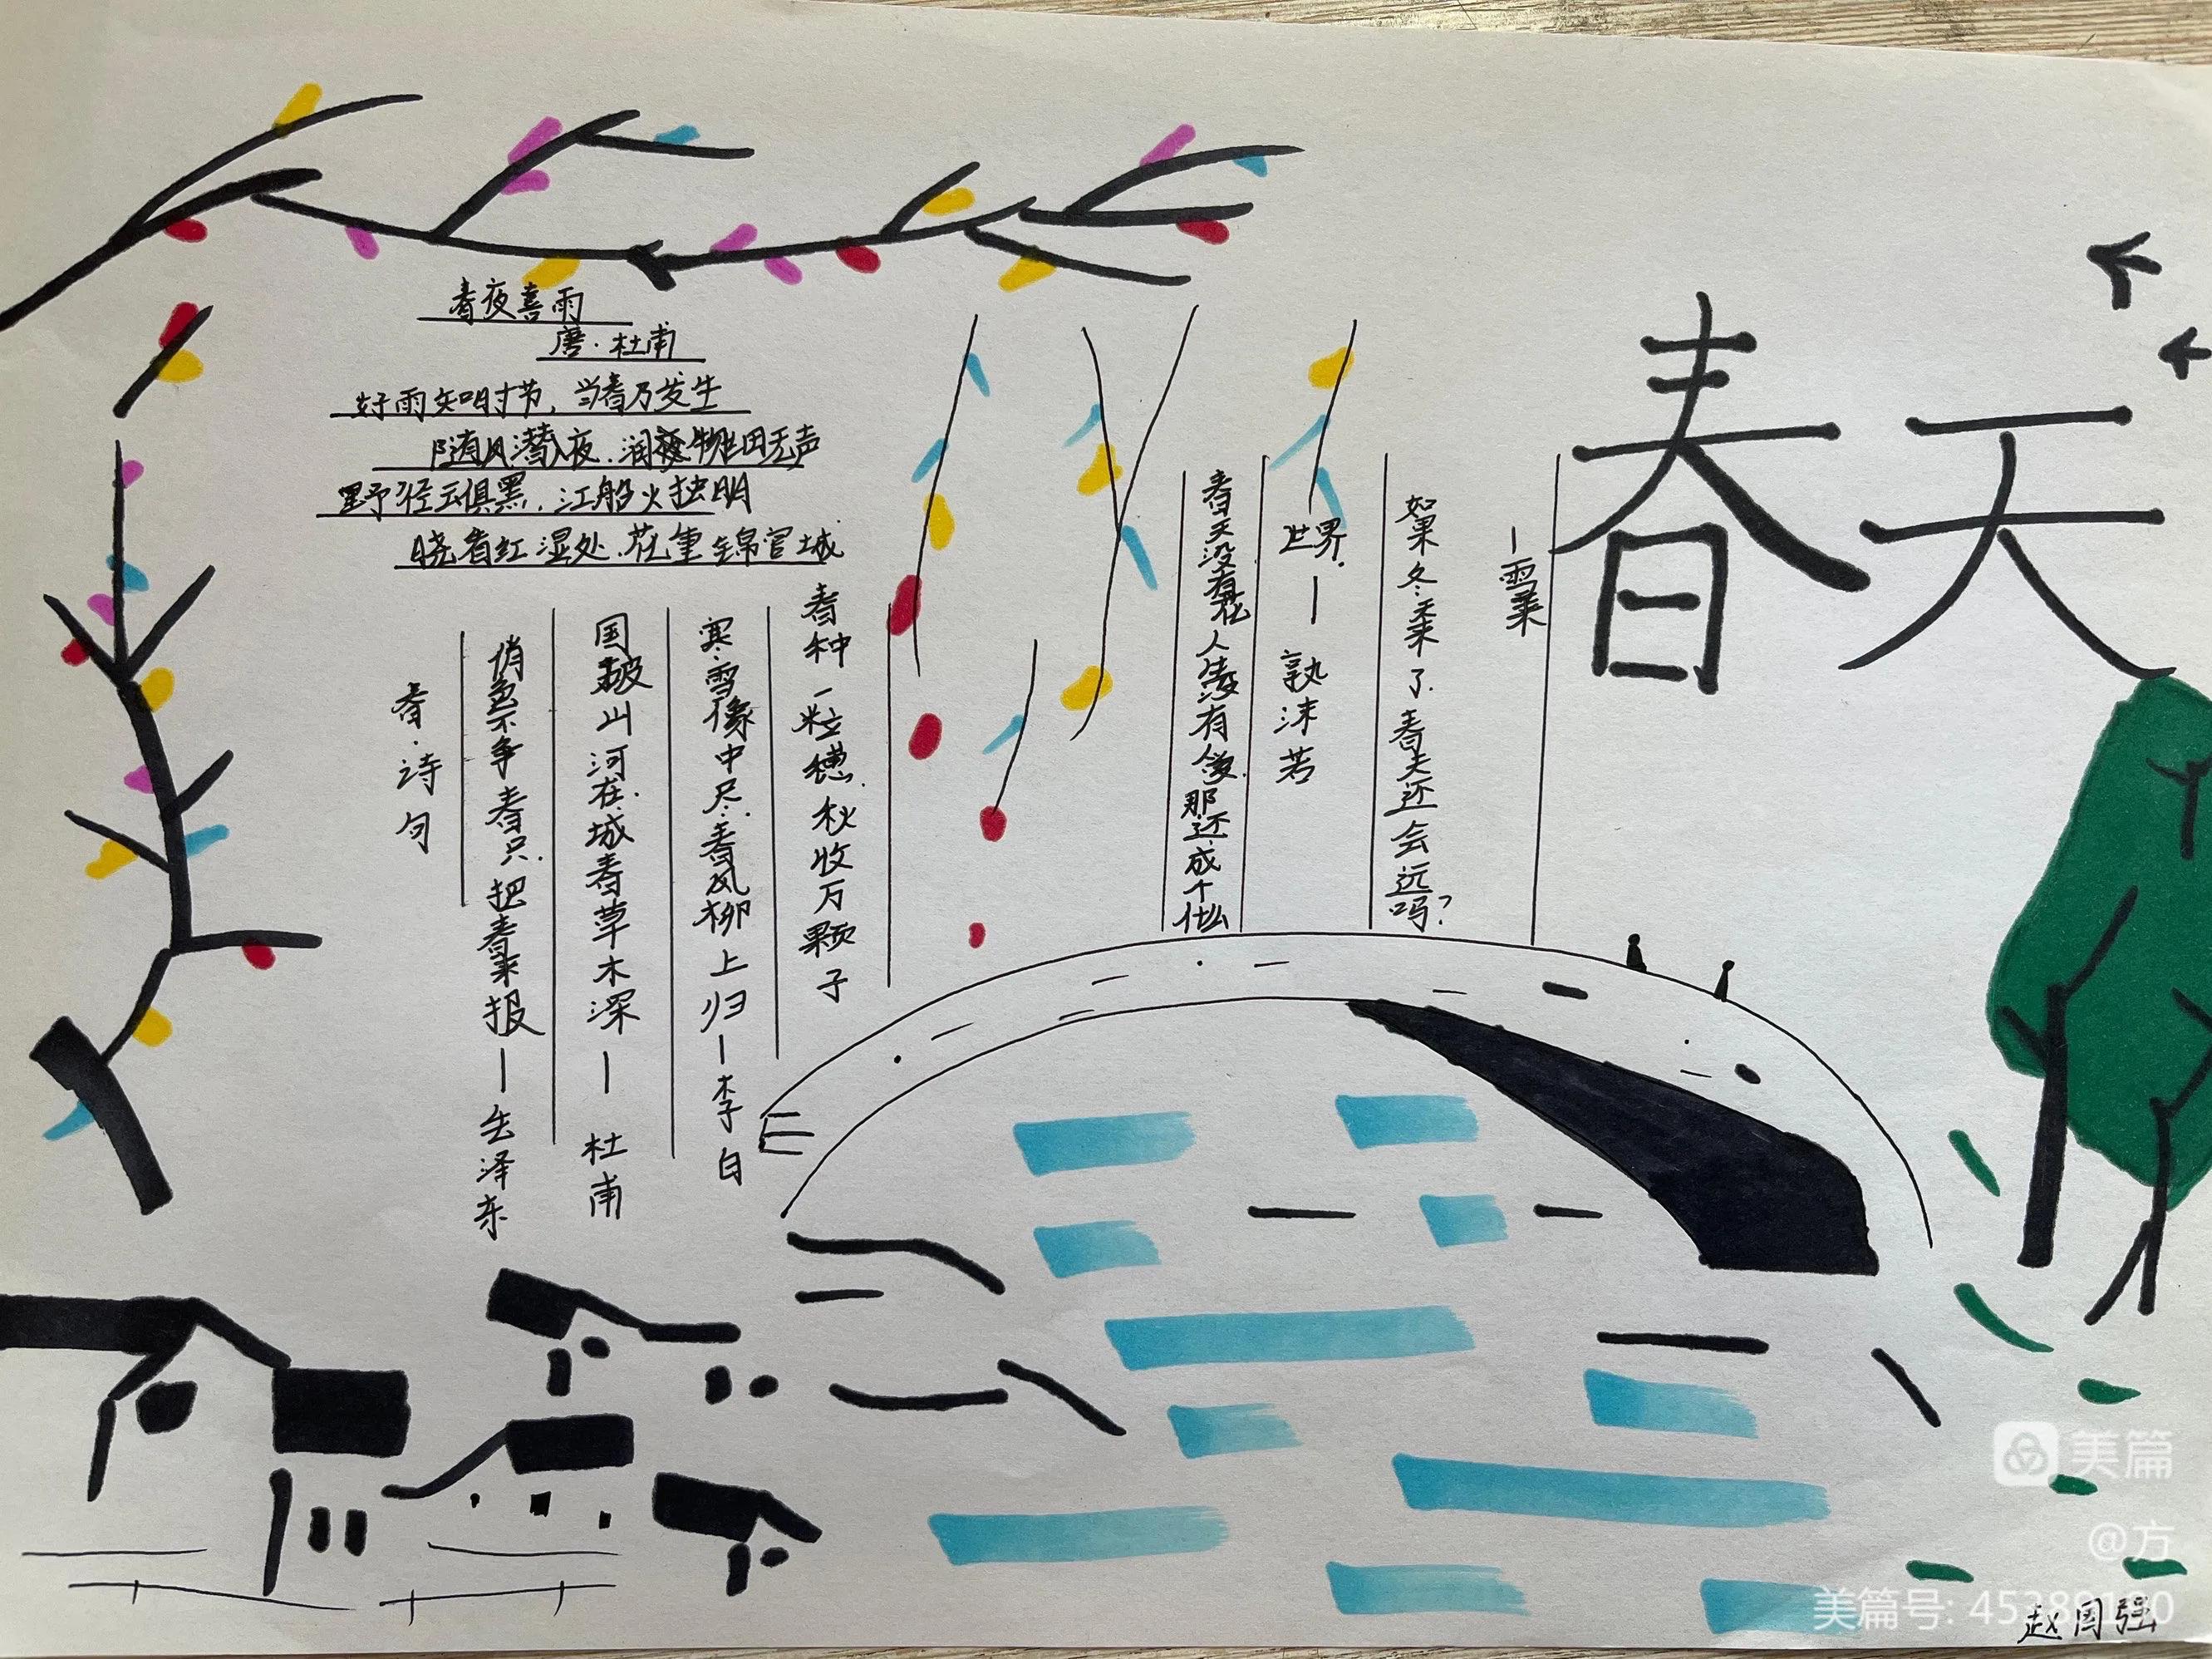 春天
春夜喜雨
唐·杜甫
好雨知时节，当春乃发生
随风潜入夜.润物细无声
野径云俱黑，江船火独明
晓看红湿处.花重锦官城
春·诗句
俏也不争春只.把春来报—毛泽东
国破山河在.城春草木深—杜甫
寒雪梅中尽.春风柳上归—李白
春种一粒穗.秋收万颗子
春天没有花人生没有爱.那还成个什么
世界.—郭沫若
如果冬来了.春天还会远吗?
—雪莱
美篇
@方
美篇号: 45389180
赵国强